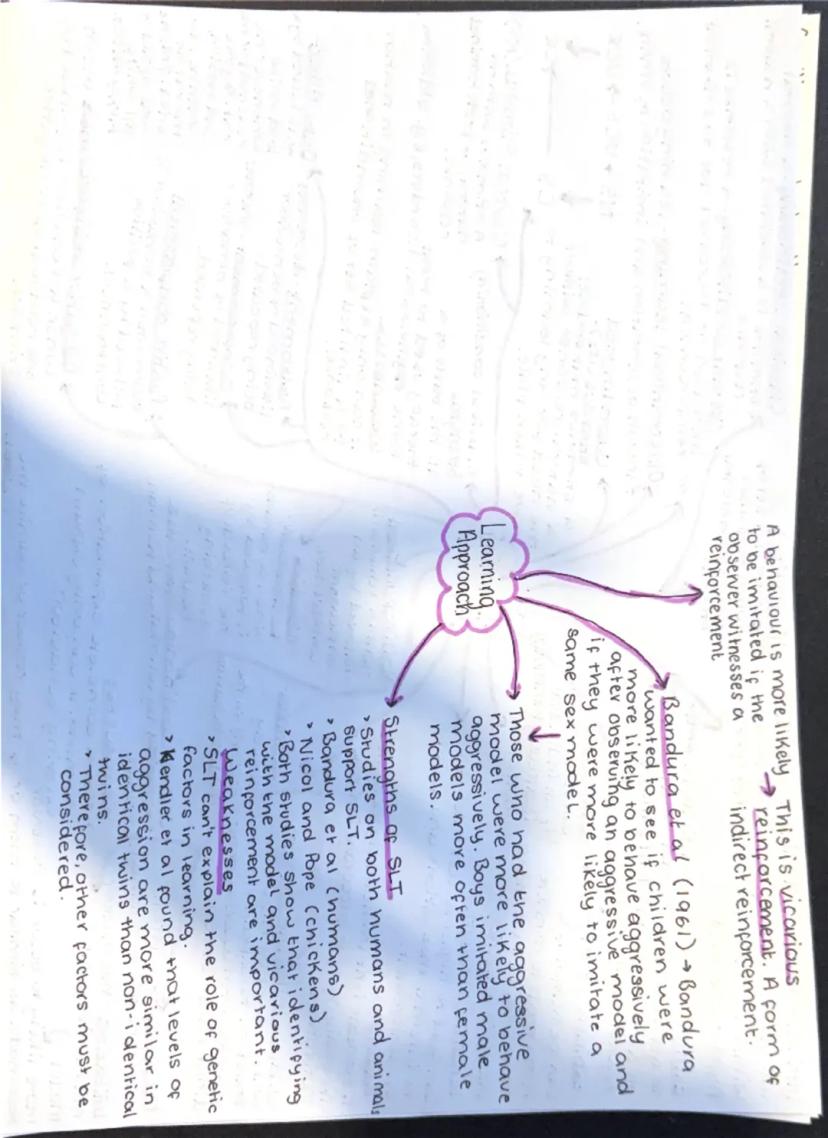 Learning
Approach
A behaviour is more likely
to be imitated if the
observer witnesses a
reinforcement
→ This is vicarious
reinforcement. A form of
indirect reinforcement.
Bandura et al (1961) → Bandura
wanted to see if children were
more likely to behave aggressively
after observing an aggressive model and
if they were more likely to imitate a
same sex model.
Those who had the aggressive
model were more likely to behave
aggressively. Boys imitated male
models more often than female
models.
Strengths of SLT
> Studies on both humans and animals
support SLT.
> Bandura et al (humans)
> Nicol and Pope (chickens)
> Both studies show that identifying
with the model and vicarious
reinforcement are important.
Weaknesses
> SLT can't explain the role of genetic
factors in learning.
> Kendler et al found that levels of
aggression are more similar in
identical twins than non-identical
twins.
> Therefore, other factors must be
considered.